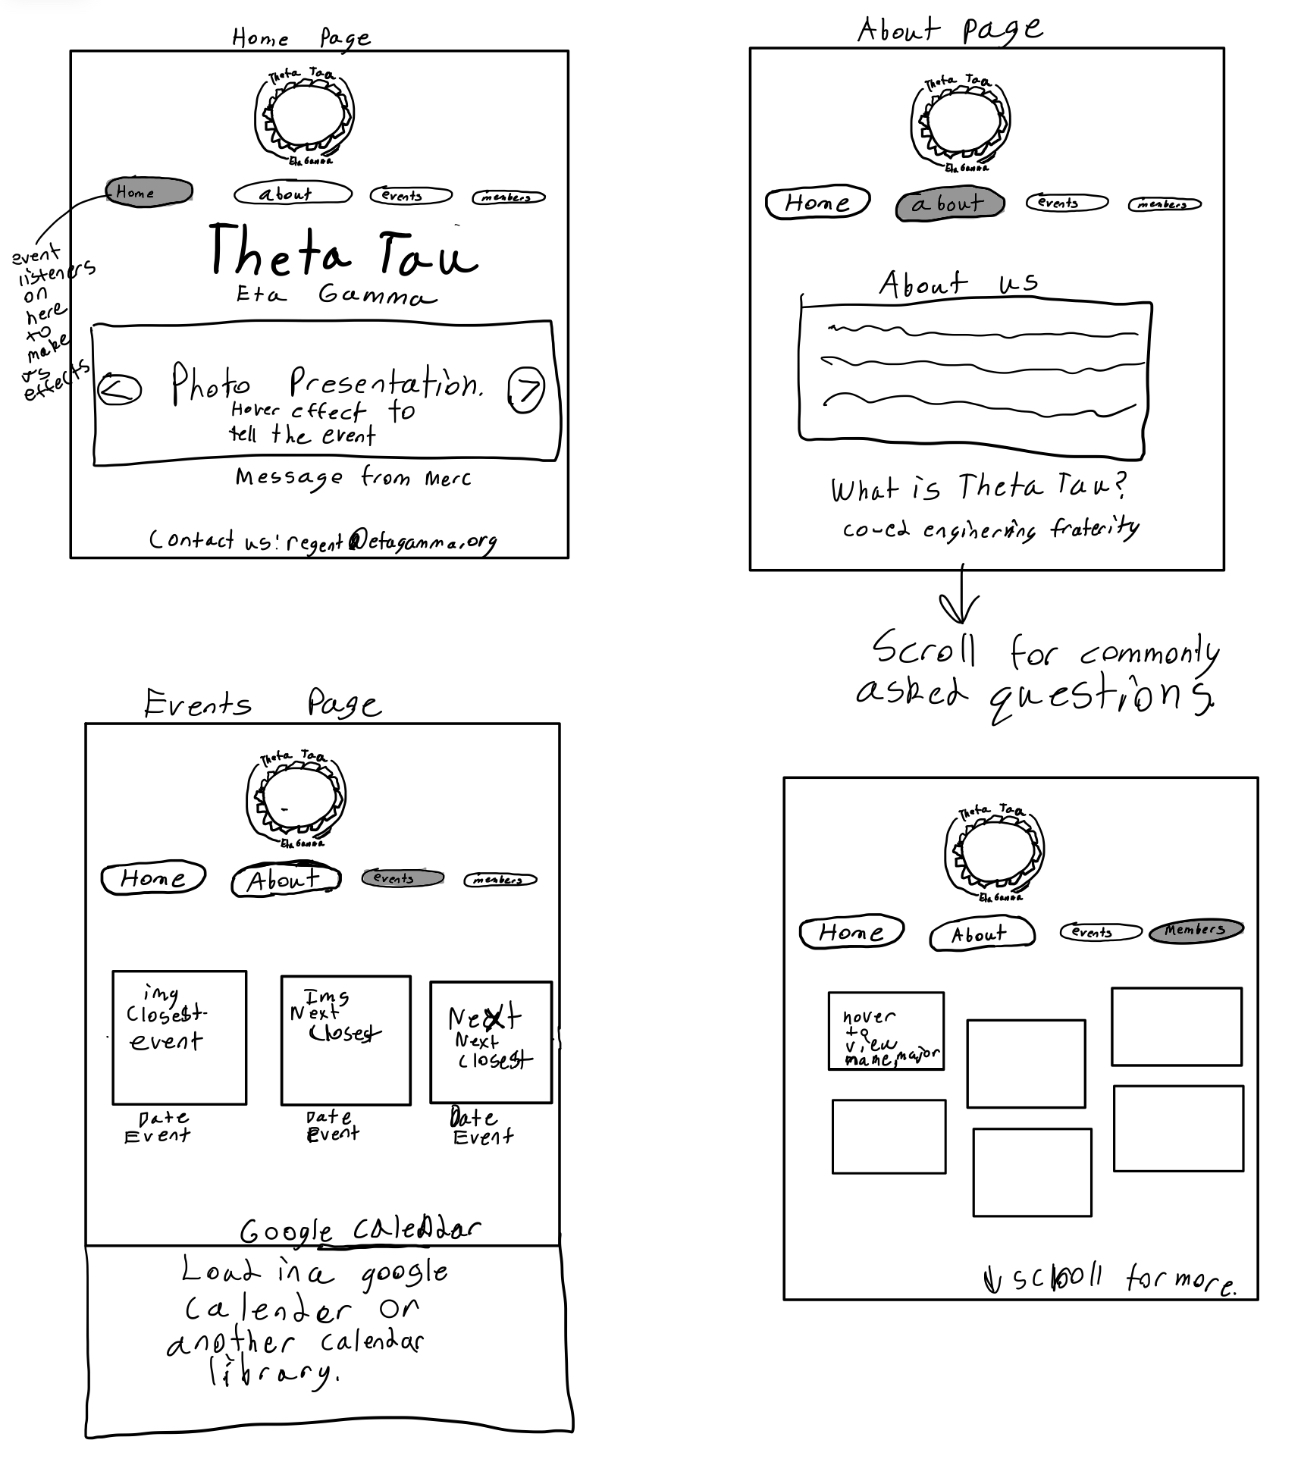 Home Page
Theta Tau
Eta Gamma
Home
about
events
members
event
listeners
on
here
to
make
effects
Theta Tau
Eta Gamma
<
Photo Presentation.
>
Hover effect to
tell the event
Message from Merc
Contact us: regent@etagamma.org
About page
Theta Tau
Eta Gamma
Home
about
events
members
About us
What is Theta Tau?
co-ed enginerring fraterity
Scroll for commonly
asked questions.
Events Page
Theta Tau
Eta Gamma
Home
About
events
members
img
Closest
event
Date
Event
Img
Next
Closest
Date
Event
Next
Next
Closest
Date
Event
Google Calendar
Load in a google
calender or
another calendar
library.
Theta Tau
Eta Gamma
Home
About
events
Members
hover
to
view
name, major
scroll for more.